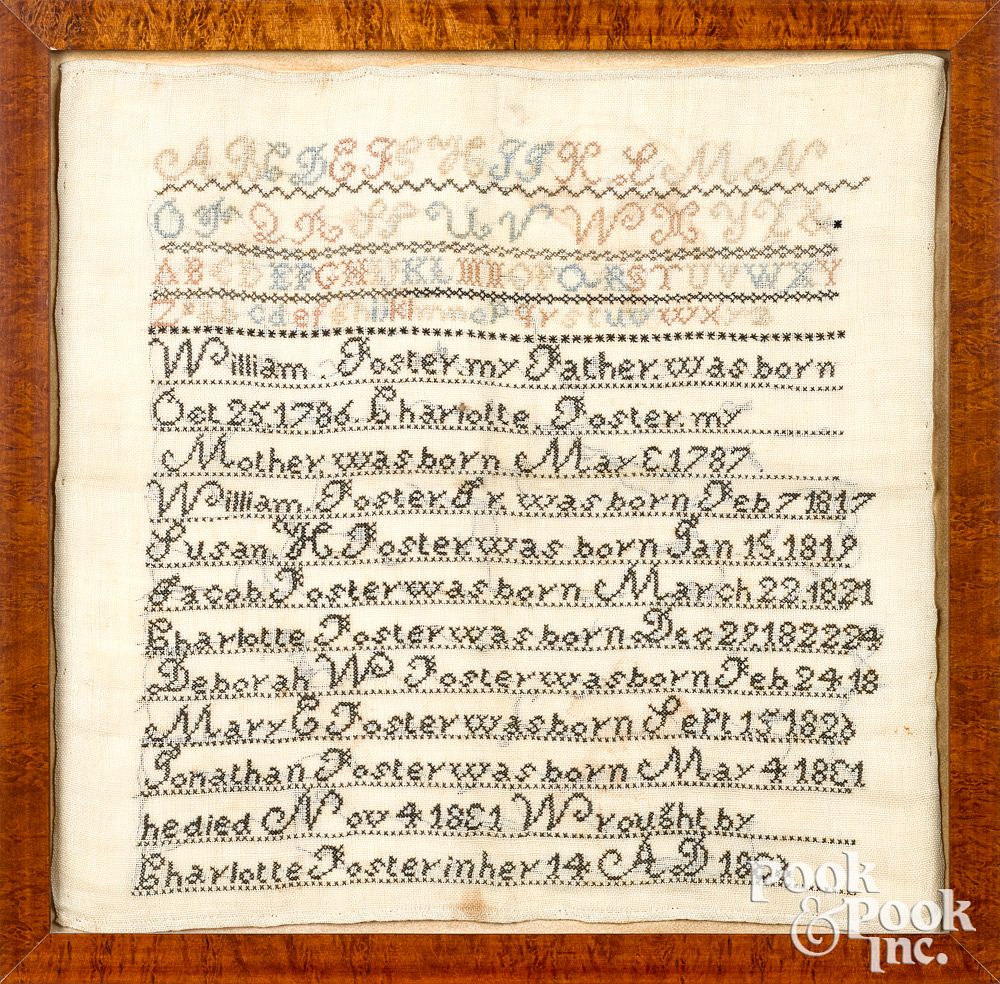 A B C D E F G H I J K L M N
O P Q R S T U V W X Y Z &
A B C D E F G H I J K L M N O P Q R S T U V W X Y
Z & a b c d e f g h i j k l m n o p q r s t u v w x y z
William Foster my Father was born
Oct 25 1786 Charlotte Foster my
Mother was born May 3 1787
William Foster Jr was born Feb 7 1817
Susan H Foster was born Jan 15 1819
Jacob Foster was born March 22 1821
Charlotte Foster was born Dec 22 1822 24
Deborah W Foster was born Feb 24 18
Mary E Foster was born Sept 15 1826
Jonathan Foster was born May 4 1831
he died Nov 4 1831 Wrought by
Charlotte Foster in her 14 A D
Pook
& Pook
Inc.